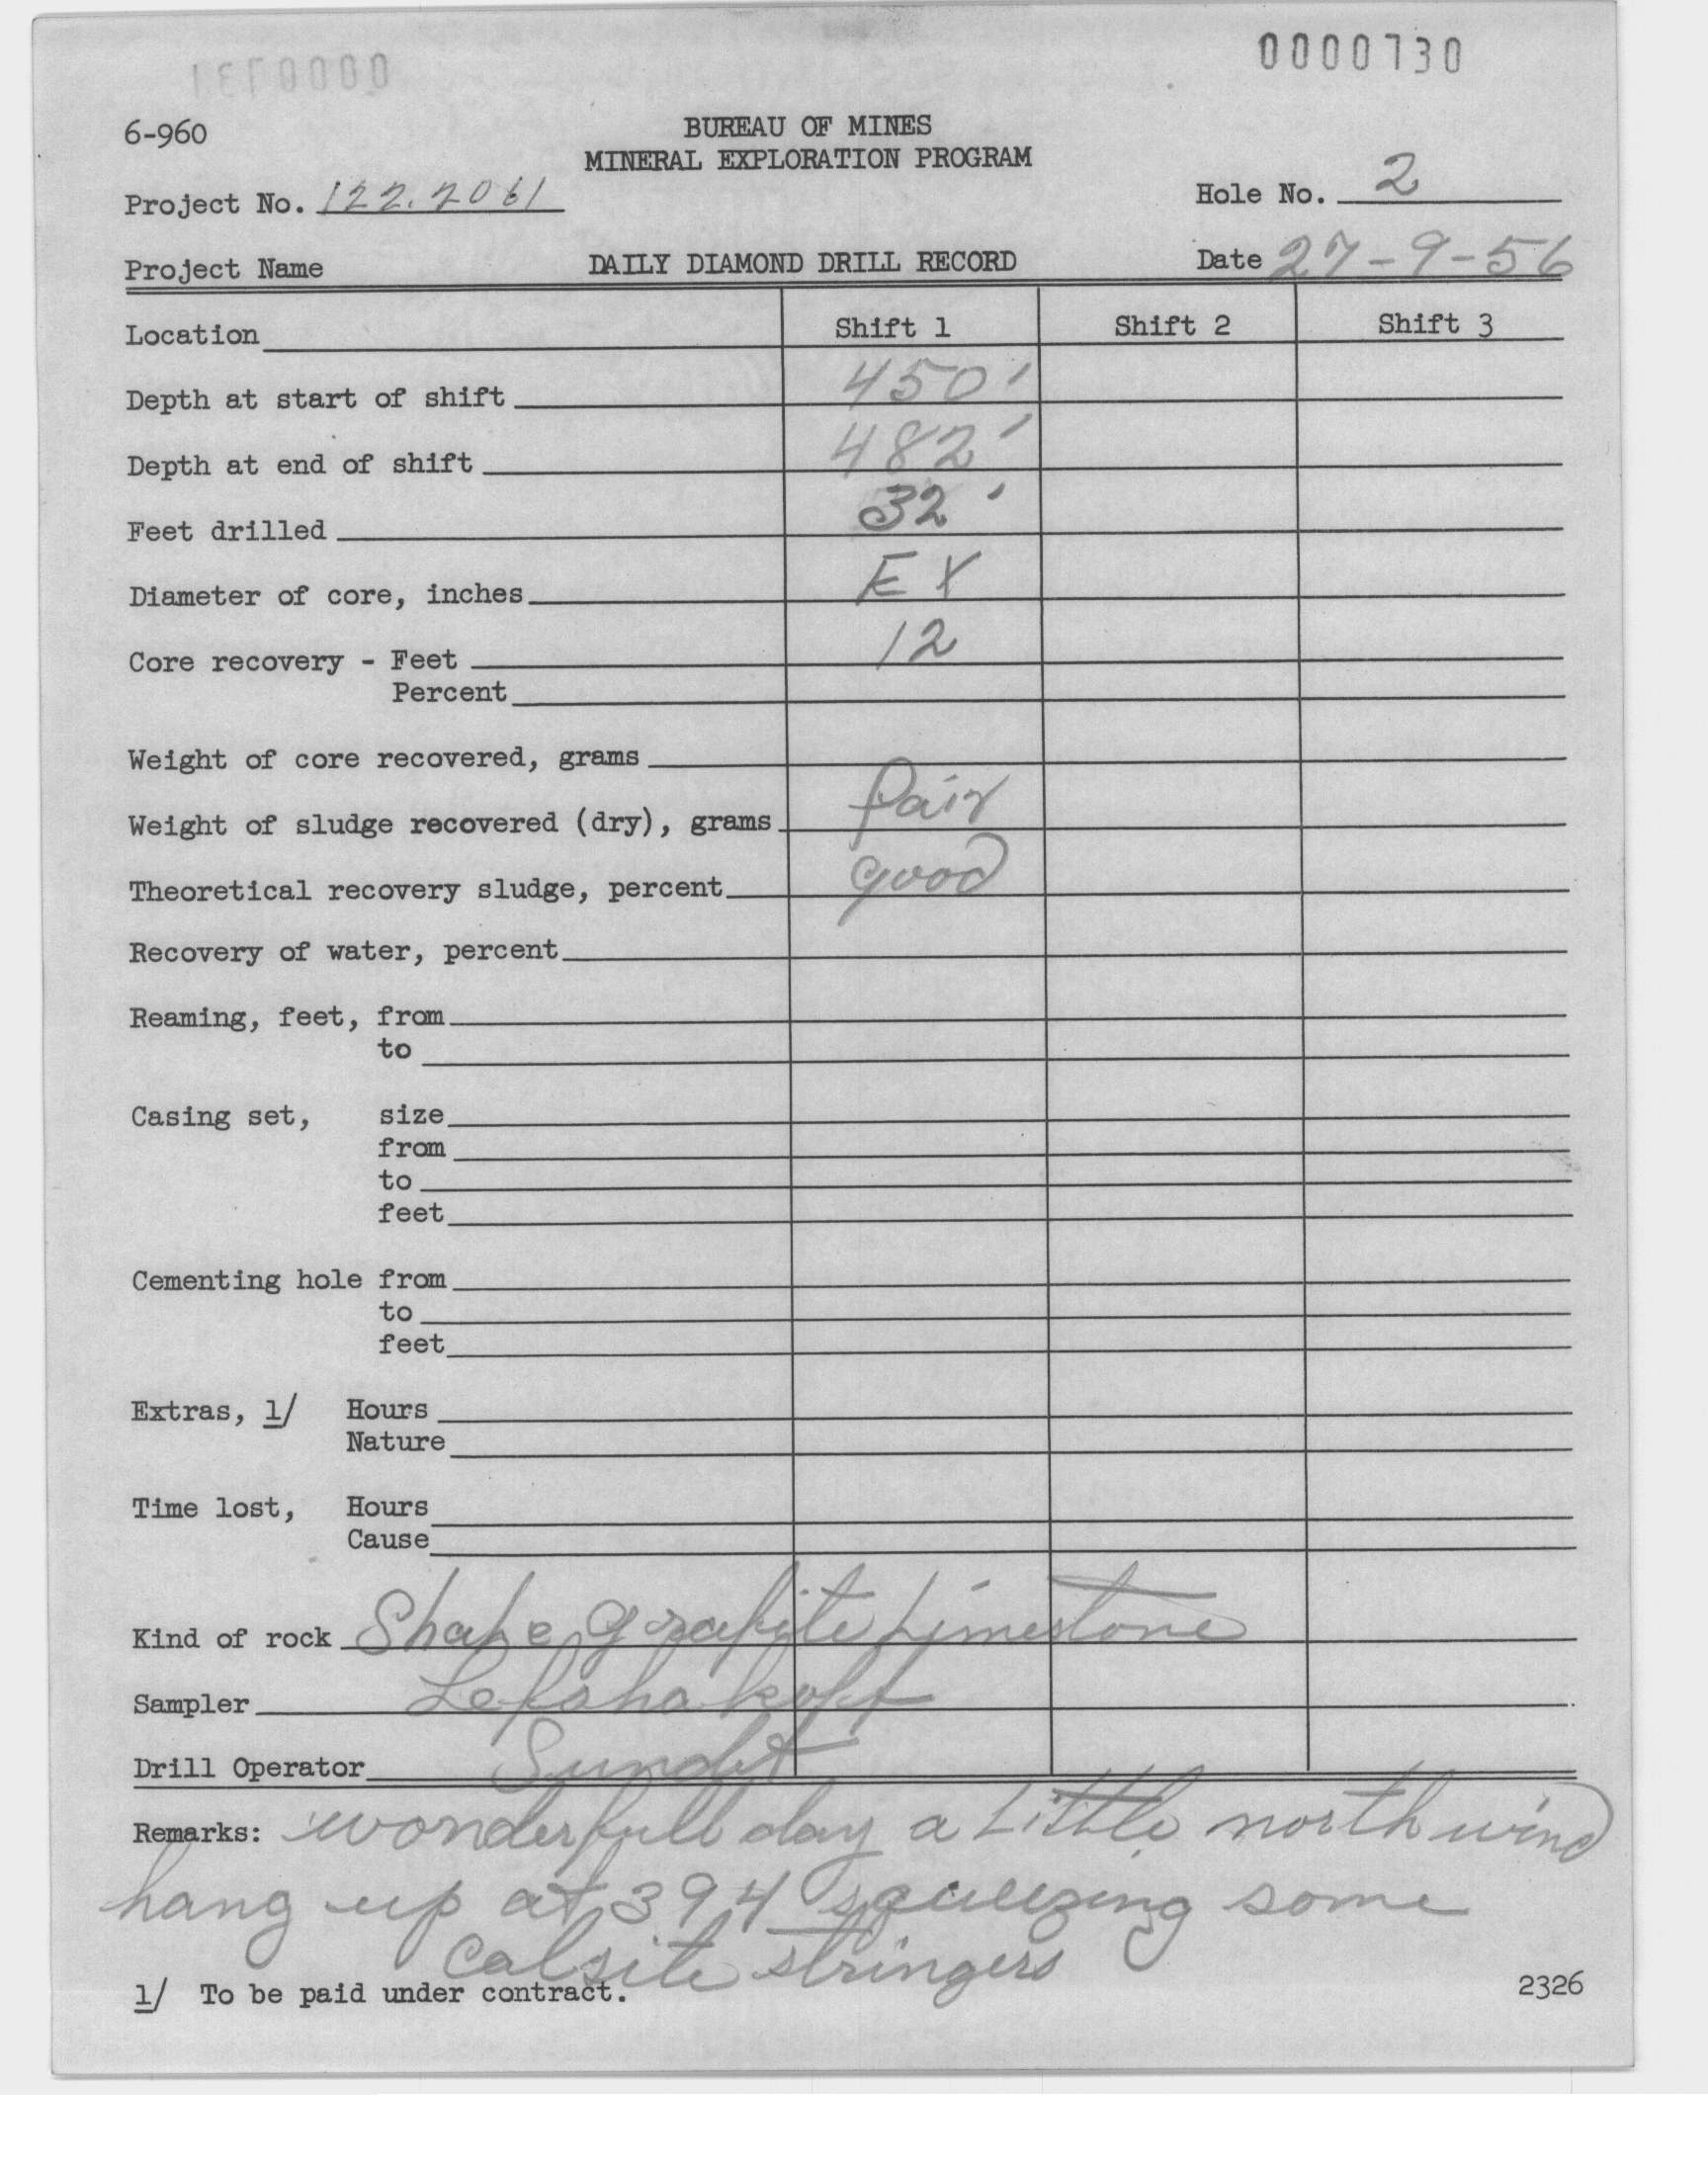 0000730
6-960
BUREAU OF MINES
MINERAL EXPLORATION PROGRAM
Project No. 122.2061
Hole No. 2
Project Name
DAILY DIAMOND DRILL RECORD
Date 27-9-56
Location Shift 1 Shift 2 Shift 3
Depth at start of shift 450'
Depth at end of shift 482'
Feet drilled 32'
Diameter of core, inches EX
Core recovery - Feet 12
Percent
Weight of core recovered, grams
Weight of sludge recovered (dry), grams fair
Theoretical recovery sludge, percent good
Recovery of water, percent
Reaming, feet, from
to
Casing set, size
from
to
feet
Cementing hole from
to
feet
Extras, 1/ Hours
Nature
Time lost, Hours
Cause
Kind of rock Shale grafite Limestone
Sampler
Drill Operator Sundt
Remarks: wonderfull day a Little north wind
hang up at 394 squeezing some
calsite stringers
1/ To be paid under contract.
2326